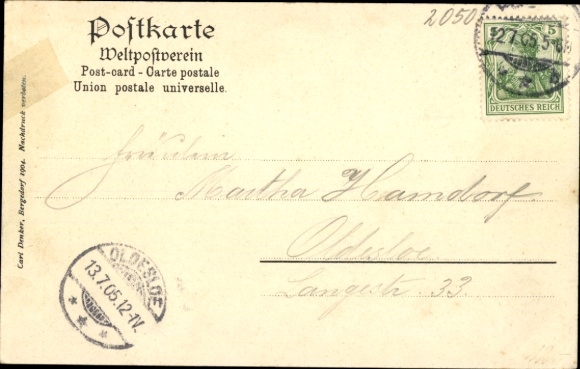 Postkarte
Weltpostverein
Post-card - Carte postale
Union postale universelle.
2050
5
12.7.05.5-6N
DEUTSCHES REICH
Carl Denker, Bergedorf 1904. Nachdruck verboten.
Fräulein
Martha Hamdorf
Oldesloe
Langestr. 33.
OLDESLOE
13.7.05.12-1V.